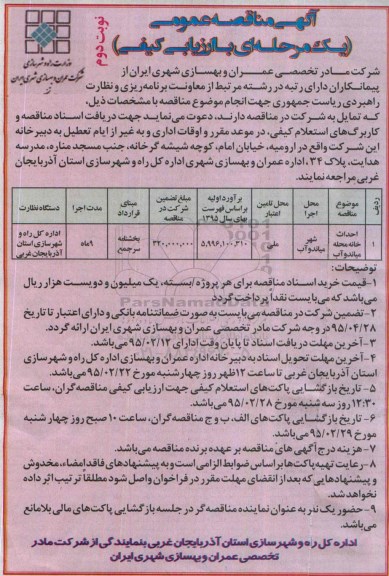 آگهی مناقصه عمومی
(یک مرحله‌ای با ارزیابی کیفی)
نوبت دوم
وزارت راه و شهرسازی
شرکت عمران و بهسازی شهری ایران
شرکت مادر تخصصی عمران و بهسازی شهری ایران از
پیمانکاران دارای رتبه در رشته مرتبط از معاونت برنامه‌ریزی و نظارت
راهبردی ریاست جمهوری جهت انجام موضوع مناقصه با مشخصات ذیل،
که تمایل به شرکت در مناقصه دارند، دعوت می‌نماید جهت دریافت اسناد مناقصه و
کاربرگ‌های استعلام کیفی، در موعد مقرر و اوقات اداری و به غیر از ایام تعطیل به دبیرخانه
این شرکت واقع در ارومیه، خیابان امام، کوچه شیشه گرخانه، جنب مسجد مناره، مدرسه
هدایت، پلاک ۳۴، اداره عمران و بهسازی شهری اداره کل راه و شهرسازی استان آذربایجان
غربی مراجعه نمایند.
ردیف | موضوع مناقصه | محل اجرا | محل تامین اعتبار | برآورد اولیه براساس فهرست بهای سال ۱۳۹۵ | مبلغ تضمین شرکت در مناقصه | مبنای قرارداد | مدت اجرا | دستگاه نظارت
۱ | احداث خانه محله میاندوآب | شهر میاندوآب | ملی | ۵,۹۹۶,۱۰۰,۳۱۰ | ۳۲۰,۰۰۰,۰۰۰ | بخشنامه سرجمع | ۹ماه | اداره کل راه و شهرسازی استان آذربایجان غربی
توضیحات:
۱- قیمت خرید اسناد مناقصه برای هر پروژه/بسته، یک میلیون و دویست هزار ریال
می‌باشد که می‌بایست نقداً پرداخت گردد.
۲- تضمین شرکت در مناقصه می‌بایست به صورت ضمانتنامه بانکی و دارای اعتبار تا تاریخ
۹۵/۰۴/۲۸ در وجه شرکت مادر تخصصی عمران و بهسازی شهری ایران ارائه گردد.
۳- آخرین مهلت دریافت اسناد تا پایان وقت اداری ۹۵/۰۲/۱۲ می‌باشد.
۴- آخرین مهلت تحویل اسناد به دبیرخانه اداره عمران و بهسازی اداره کل راه و شهرسازی
استان آذربایجان غربی تا ساعت ۱۲ ظهر روز چهارشنبه مورخ ۹۵/۰۲/۲۲ می‌باشد.
۵- تاریخ بازگشایی پاکت‌های استعلام کیفی جهت ارزیابی کیفی مناقصه‌گران، ساعت
۱۲:۳۰ روز سه شنبه مورخ ۹۵/۰۲/۲۸ می‌باشد.
۶- تاریخ بازگشایی پاکت‌های الف، ب و ج مناقصه‌گران، ساعت ۱۰ صبح روز چهارشنبه
مورخ ۹۵/۰۲/۲۹ می‌باشد.
۷- هزینه درج آگهی های مناقصه بر عهده برنده مناقصه می‌باشد.
۸- رعایت تهیه پاکت‌ها براساس ضوابط الزامی است و به پیشنهادهای فاقد امضاء، مخدوش
و پیشنهادهایی که بعد از انقضای مهلت مقرر در فراخوان واصل شود مطلقاً ترتیب اثر داده
نخواهد شد.
۹- حضور یک نفر به عنوان نماینده مناقصه‌گر در جلسه بازگشایی پاکت‌های مالی بلامانع
می‌باشد.
اداره کل راه و شهرسازی استان آذربایجان غربی بنمایندگی از شرکت مادر
تخصصی عمران و بهسازی شهری ایران